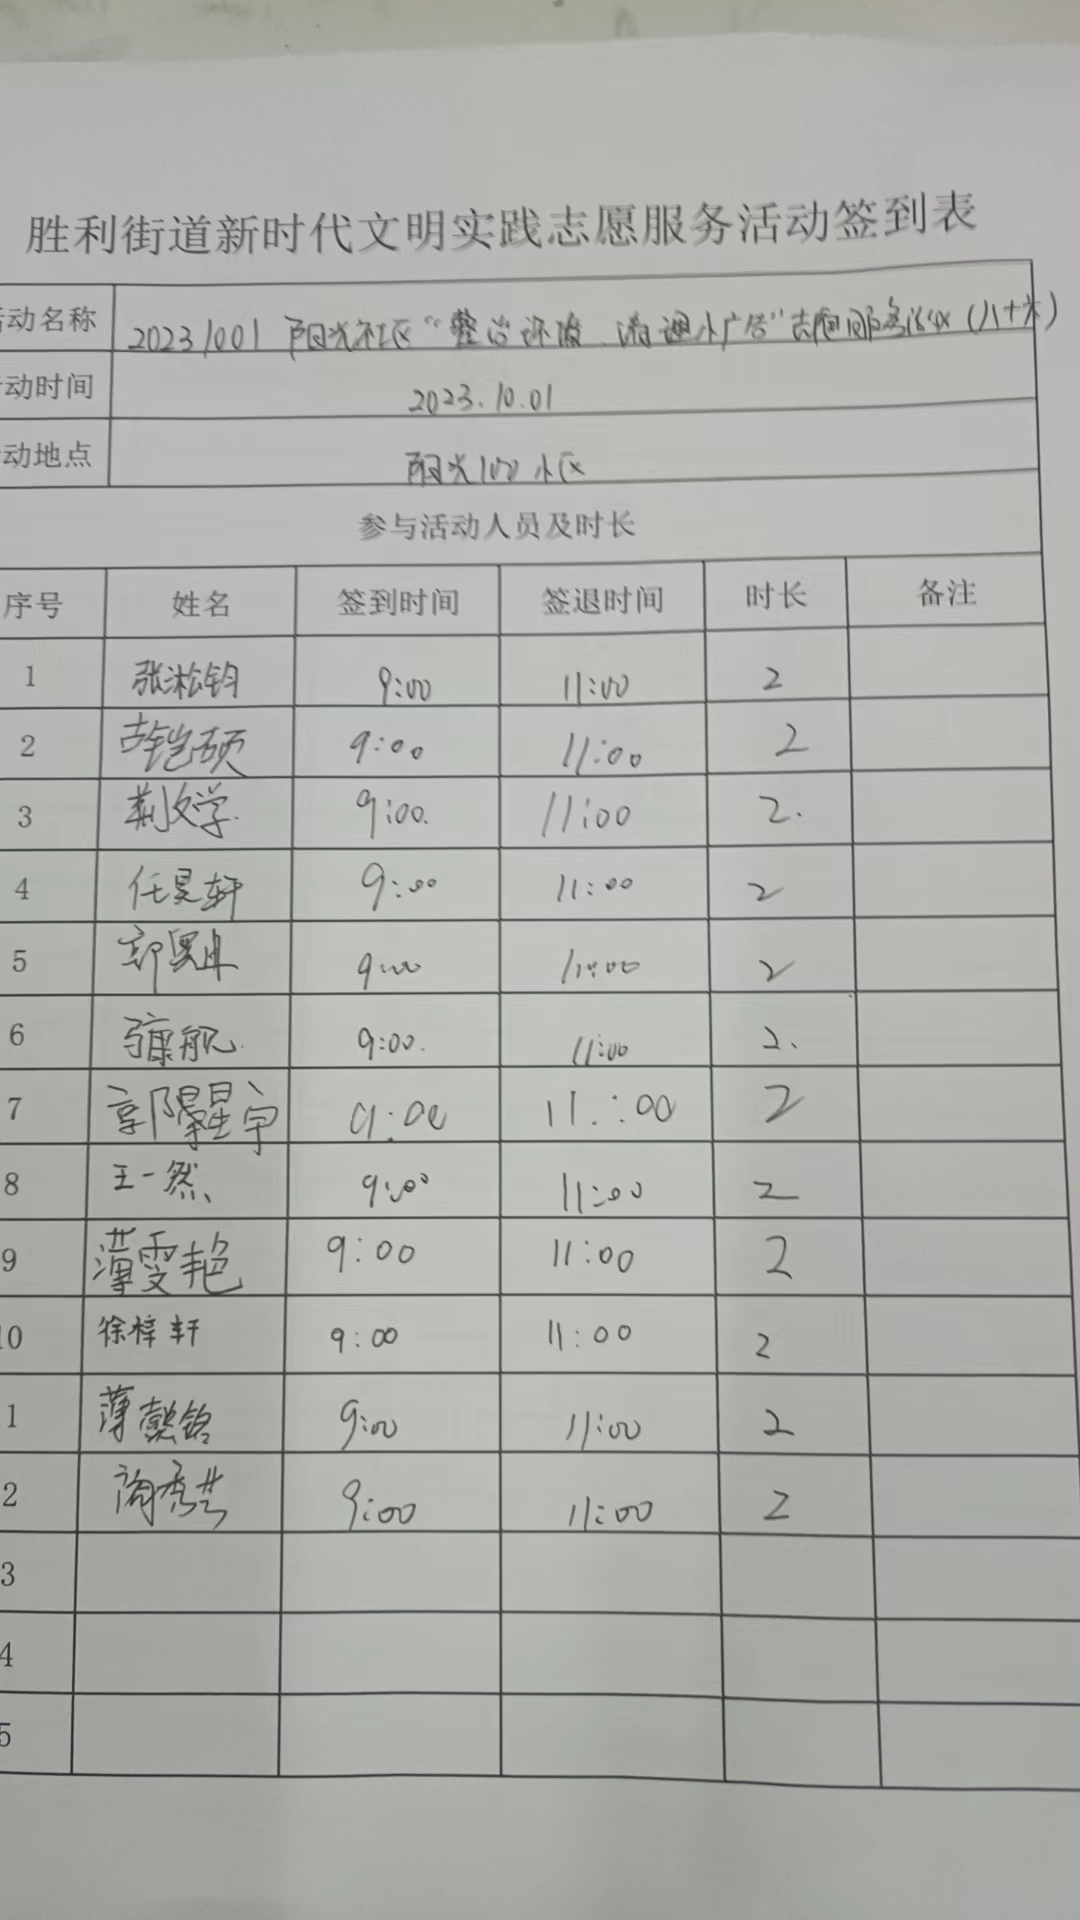 胜利街道新时代文明实践志愿服务活动签到表
动名称 20231001 阳光社区“整治环境、清理小广告”志愿服务活动(八十六)
动时间 2023.10.01
动地点 阳光100小区
参与活动人员及时长
序号 姓名 签到时间 签退时间 时长 备注
1 张淞钧 9:00 11:00 2
2 古铠硕 9:00 11:00 2
3 荆文学 9:00. 11:00 2.
4 任昊轩 9:00 11:00 2
5 9:00 11:00 2
6 9:00. 11:00 2.
7 郭星宇 9:00 11:00 2
8 王一然 9:00 11:00 2
9 薄雯艳 9:00 11:00 2
0 徐梓轩 9:00 11:00 2
1 薄懿铭 9:00 11:00 2
2 9:00 11:00 2
3
4
5